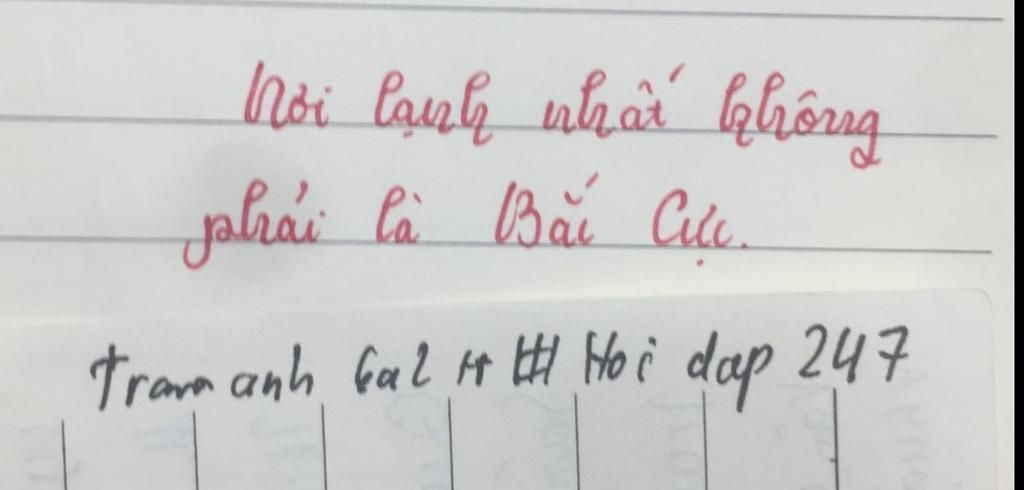 Nơi lạnh nhất không
phải là Bắc Cực.
Tram anh 6a2 Hoi dap 247